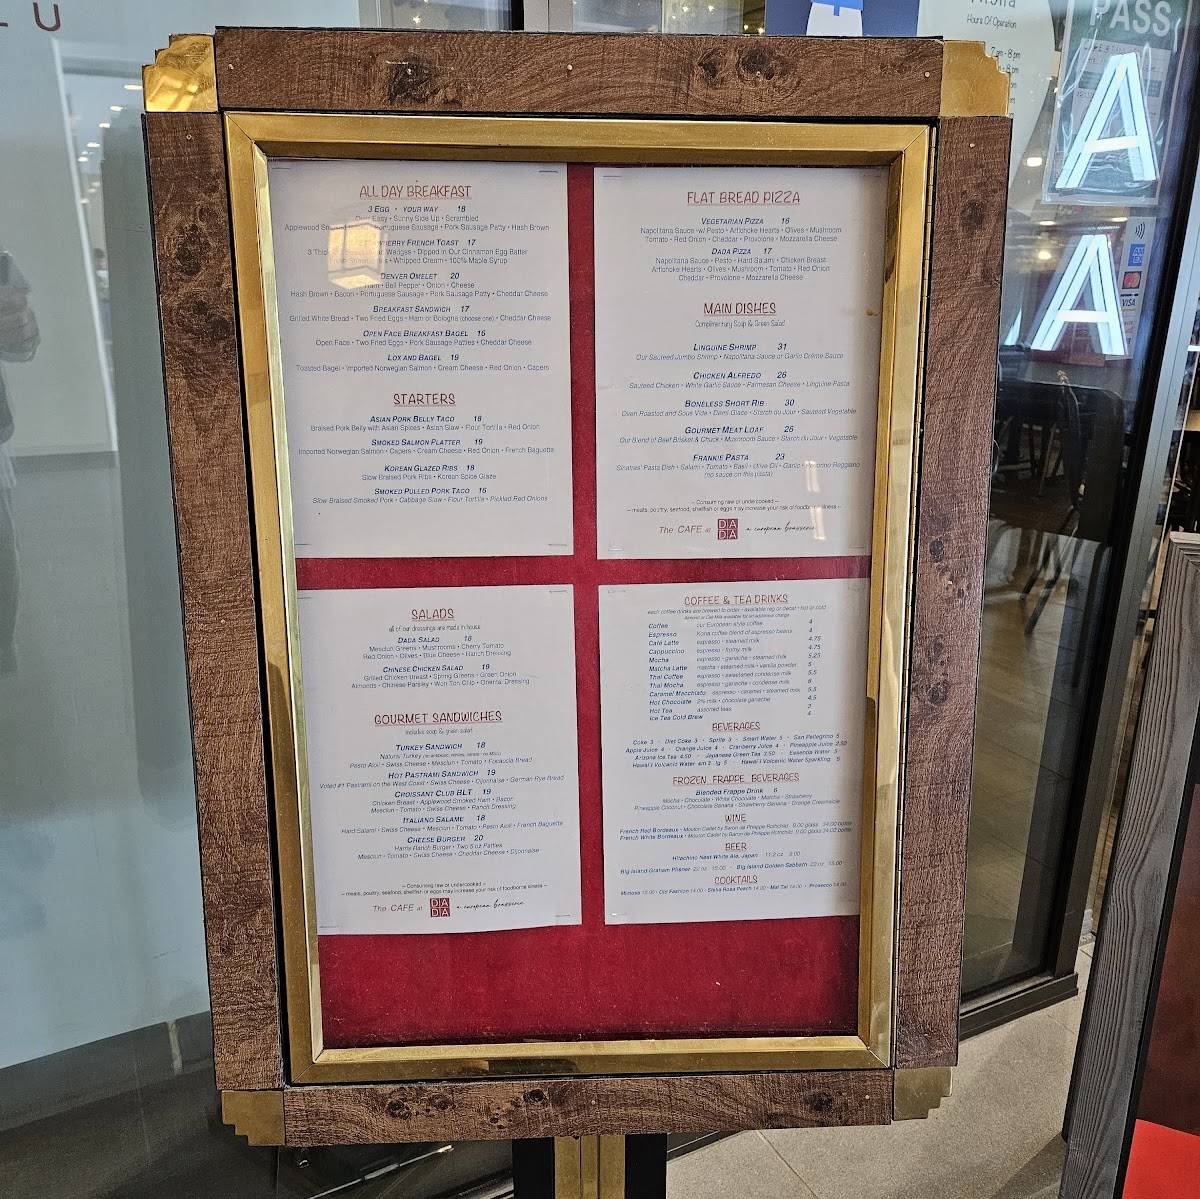 LU
Hours Of Operation
7 am - 8 pm
PASS
A
A
VISA
ALL DAY BREAKFAST
3 EGG • YOUR WAY 18
Easy • Sunny Side Up • Scrambled
Applewood Portuguese Sausage • Pork Sausage Patty • Hash Brown
FRENCH TOAST 17
3 Thick Wedges • Dipped in Our Cinnamon Egg Batter
• Whipped Cream • 100% Maple Syrup
DENVER OMELET 20
Ham • Bell Pepper • Onion • Cheese
Hash Brown • Bacon • Portuguese Sausage • Pork Sausage Patty • Cheddar Cheese
BREAKFAST SANDWICH 17
Grilled White Bread • Two Fried Eggs • Ham or Bologna (choose one) • Cheddar Cheese
OPEN FACE BREAKFAST BAGEL 16
Open Face • Two Fried Eggs • Pork Sausage Patties • Cheddar Cheese
LOX AND BAGEL 19
Toasted Bagel • Imported Norwegian Salmon • Cream Cheese • Red Onion • Capers
STARTERS
ASIAN PORK BELLY TACO 18
Braised Pork Belly with Asian Spices • Asian Slaw • Flour Tortilla • Red Onion
SMOKED SALMON PLATTER 19
Imported Norwegian Salmon • Capers • Cream Cheese • Red Onion • French Baguette
KOREAN GLAZED RIBS 18
Slow Braised Pork Ribs • Korean Spice Glaze
SMOKED PULLED PORK TACO 16
Slow Braised Smoked Pork • Cabbage Slaw • Flour Tortilla • Pickled Red Onions
FLAT BREAD PIZZA
VEGETARIAN PIZZA 16
Napolitana Sauce -w/ Pesto • Artichoke Hearts • Olives • Mushroom
Tomato • Red Onion • Cheddar • Provolone • Mozzarella Cheese
DADA PIZZA 17
Napolitana Sauce • Pesto • Hard Salami • Chicken Breast
Artichoke Hearts • Olives • Mushroom • Tomato • Red Onion
Cheddar • Provolone • Mozzarella Cheese
MAIN DISHES
Complimentary Soup & Green Salad
LINGUINE SHRIMP 31
Our Sauteed Jumbo Shrimp • Napolitana Sauce or Garlic Crème Sauce
CHICKEN ALFREDO 26
Sauteed Chicken • White Garlic Sauce • Parmesan Cheese • Linguine Pasta
BONELESS SHORT RIB 30
Oven Roasted and Sous Vide • Demi Glaze • Starch du Jour • Sauteed Vegetable
GOURMET MEAT LOAF 26
Our Blend of Beef Brisket & Chuck • Mushroom Sauce • Starch du Jour • Vegetable
FRANKIE PASTA 23
Sinatras' Pasta Dish • Salami • Tomato • Basil • Olive Oil • Garlic • Pecorino Reggiano
(no sauce on this pasta)
– Consuming raw or undercooked –
– meats, poultry, seafood, shellfish or eggs may increase your risk of foodborne illness –
The CAFE at DADA a european brasserie
SALADS
all of our dressings are made in house
DADA SALAD 18
Mesclun Greens • Mushrooms • Cherry Tomato
Red Onion • Olives • Blue Cheese • Ranch Dressing
CHINESE CHICKEN SALAD 19
Grilled Chicken Breast • Spring Greens • Green Onion
Almonds • Chinese Parsley • Won Ton Chip • Oriental Dressing
GOURMET SANDWICHES
includes soup & green salad
TURKEY SANDWICH 18
Natural Turkey
Pesto Aioli • Swiss Cheese • Mesclun • Tomato • Focaccia Bread
HOT PASTRAMI SANDWICH 19
Voted #1 Pastrami on the West Coast • Swiss Cheese • Dijonnaise • German Rye Bread
CROISSANT CLUB BLT 19
Chicken Breast • Applewood Smoked Ham • Bacon
Mesclun • Tomato • Swiss Cheese • Ranch Dressing
ITALIANO SALAME 18
Hard Salami • Swiss Cheese • Mesclun • Tomato • Pesto Aioli • French Baguette
CHEESE BURGER 20
Harris Ranch Burger • Two 5 oz Patties
Mesclun • Tomato • Swiss Cheese • Cheddar Cheese • Dijonnaise
– Consuming raw or undercooked –
– meats, poultry, seafood, shellfish or eggs may increase your risk of foodborne illness –
The CAFE at DADA a european brasserie
COFFEE & TEA DRINKS
each coffee drinks are brewed to order • available reg or decaf • hot or cold
Almond or Oat Milk available for an additional charge
Coffee our European style coffee 4
Espresso Kona coffee blend of espresso beans 4
Café Latte espresso • steamed milk 4.75
Cappuccino espresso • frothy milk 4.75
Mocha espresso • ganache • steamed milk 5.25
Matcha Latte matcha • steamed milk • vanilla powder 5
Thai Coffee espresso • sweetened condense milk 5.5
Thai Mocha espresso • ganache • condense milk 6
Caramel Macchiato espresso • caramel • steamed milk 5.5
Hot Chocolate 2% milk • chocolate ganache 4.5
Hot Tea assorted teas 3
Ice Tea Cold Brew 4
BEVERAGES
Coke 3 - Diet Coke 3 - Sprite 3 - Smart Water 5 - San Pellegrino 5
Apple Juice 4 - Orange Juice 4 - Cranberry Juice 4 - Pineapple Juice 2.50
Arizona Ice Tea 4.50 - Japanese Green Tea 3.50 - Essentia Water 5
Hawai'i Volcanic Water sm 3 lg 5 - Hawai'i Volcanic Water Sparkling 5
FROZEN FRAPPE BEVERAGES
Blended Frappe Drink 6
Mocha • Chocolate • White Chocolate • Matcha • Strawberry
Pineapple Coconut • Chocolate Banana • Strawberry Banana • Orange Creamsicle
WINE
French Red Bordeaux • Mouton Cadet by Baron de Philippe Rothschild 9.00 glass 34.00 bottle
French White Bordeaux • Mouton Cadet by Baron de Philippe Rothschild 9.00 glass 34.00 bottle
BEER
Hitachino Nest White Ale, Japan 11.2 oz 9.00
Big Island Graham Pilsner 22 oz 15.00 - Big Island Golden Sabbath 22 oz 15.00
COCKTAILS
Mimosa • Old Fashion 14.00 • Stella Rosa Peach 14.00 • Mai Tai 14.00 • Prosecco 14.00